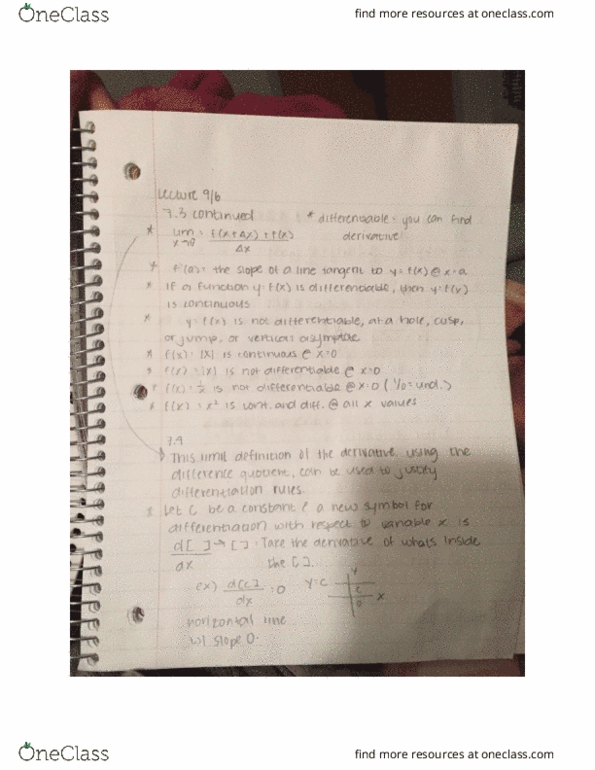 OneClass
find more resources at oneclass.com
Lecture 9/6
3.3 continued
* differentiable = you can find
derivative
* lim = f(x+Δx) + f(x)
x→0 Δx
* f'(a) = the slope of a line tangent to y = f(x) @ x=a
* If a function y = f(x) is differentiable, then y=f(x)
is continuous
* y = f(x) is not differentiable, at a hole, cusp,
or jump, or vertical asymptote
* f(x) = |x| is continuous @ x=0
* f(x) = |x| is not differentiable @ x=0
* f(x) = 1/x is not differentiable @ x=0 (1/0 = und.)
* f(x) = x² is cont. and diff. @ all x values
3.4
This limit definition of the derivative, using the
difference quotient, can be used to justify
differentiation rules.
* Let C be a constant & a new symbol for
differentiation with respect to variable x is
d[ ] → [ ] = Take the derivative of whats inside
dx the [ ].
ex) d[C] = 0 y=C
dx
y
C
0
x
horizontal line
w/ slope 0.
OneClass
find more resources at oneclass.com